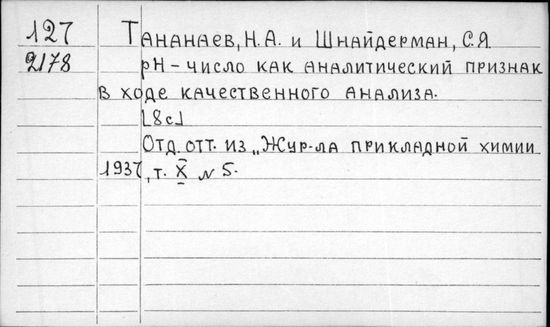 127 Тананаев, Н.А. и Шнайдерман, С.Я.
2178 рН – число как аналитический признак
в ходе качественного анализа.
[8с]
Отд. отт. из „Жур-ла прикладной химии
1937, т. X № 5.